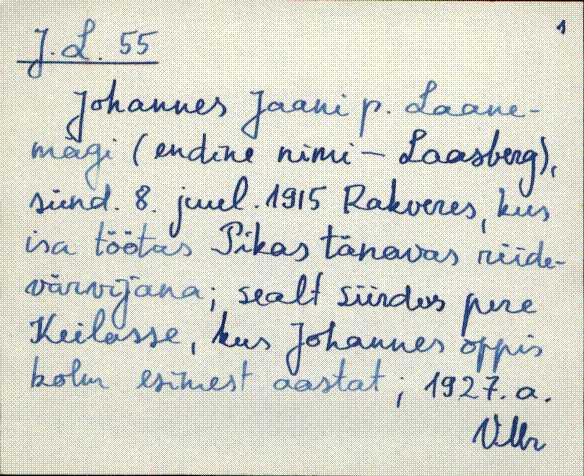 1
J. L. 55
Johannes Jaani p. Laane-
mägi (endine nimi - Laasberg),
sünd. 8. juul. 1915 Rakveres, kus
isa töötas Pikas tänavas riide-
värvijana; sealt siirdus pere
Keilasse, kus Johannes õppis
kolm esimest aastat; 1927. a.